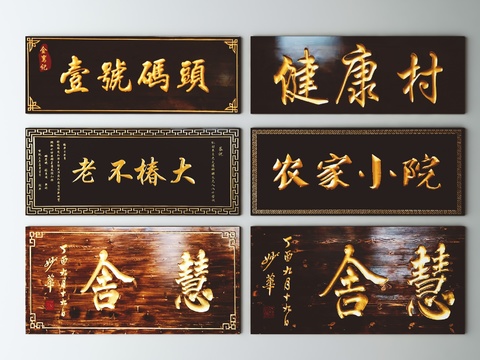 壹號碼頭
健康村
大椿不老
农家小院
慧舍
丁酉九月十九日
妙華
慧舍
丁酉九月十九日
妙華